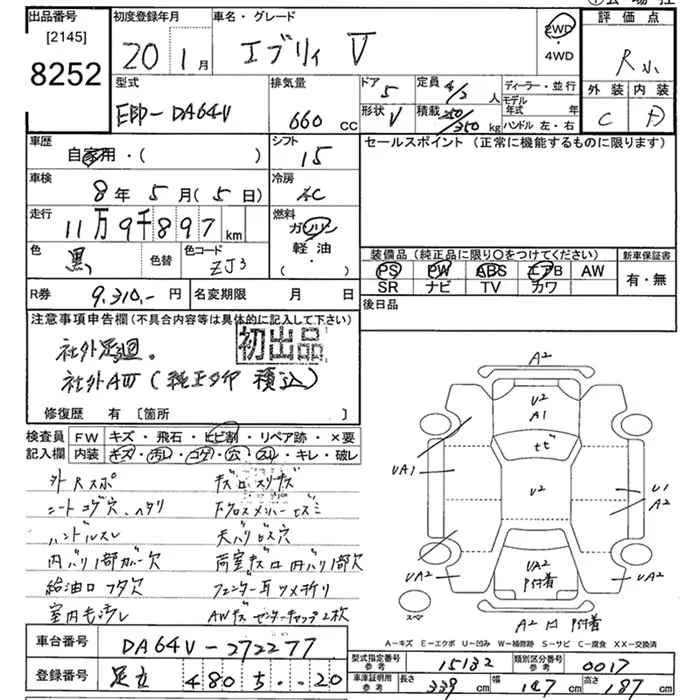 出品番号 初度登録年月 車名・グレード 評価点
[2145]
8252
20 1月 エブリイ V 2WD・4WD R 小
型式 排気量 ドア 定員 ディーラー・並行 外装 内装
EBD-DA64V 660 cc 5 4/2 人 モデル年式 年 C D
形状 V 積載 250/350 kg ハンドル 左・右
車歴 自家用・( ) シフト 15 セールスポイント (正常に機能するものに限ります)
車検 8年 5月(5日) 冷房 AC
走行 11万9千897 km 燃料 ガソリン
軽油
・( )
色 黒 色替 色コード ZJ3
装備品 (純正品に限り○をつけてください) 新車保証書
PS PW ABS エアB AW 有・無
SR ナビ TV カワ
R券 9,310.- 円 名変期限 月 日 後日品
注意事項申告欄(不具合内容等は具体的に記入して下さい)
初出品
社外足廻。
社外AW (純正タイヤ 積込)
修復歴 有 [箇所 ]
検査員 FW キズ・飛石・ヒビ割・リペア跡・×要
記入欄 内装 キズ・汚レ・コゲ・穴・スレ・キレ・破レ
外Rスポ
シートコゲ穴、ヘタリ
ハンドルスレ 天バリロス穴
内バリ1部カバー欠 荷室キズ 内バリ1部欠
給油口フタ欠 フェンダー耳ツメ折リ
室内モヨゴレ AWキズ センターキャップ2枚
A2
U2
A1
ヒビ
UA1
U2
U1
A2
UA2
UA2
P付着
UA2
スペ
A2 P付着
A-キズ E-エクボ U-凹み W-補修跡 S-サビ C-腐食 XX-交換済
車台番号 DA64V-272277
登録番号 足立 480 ち ・・20
型式指定番号 参考 15132 類別区分番号 参考 0017
車庫証明用 参考 長さ 339 cm 幅 147 cm 高さ 187 cm